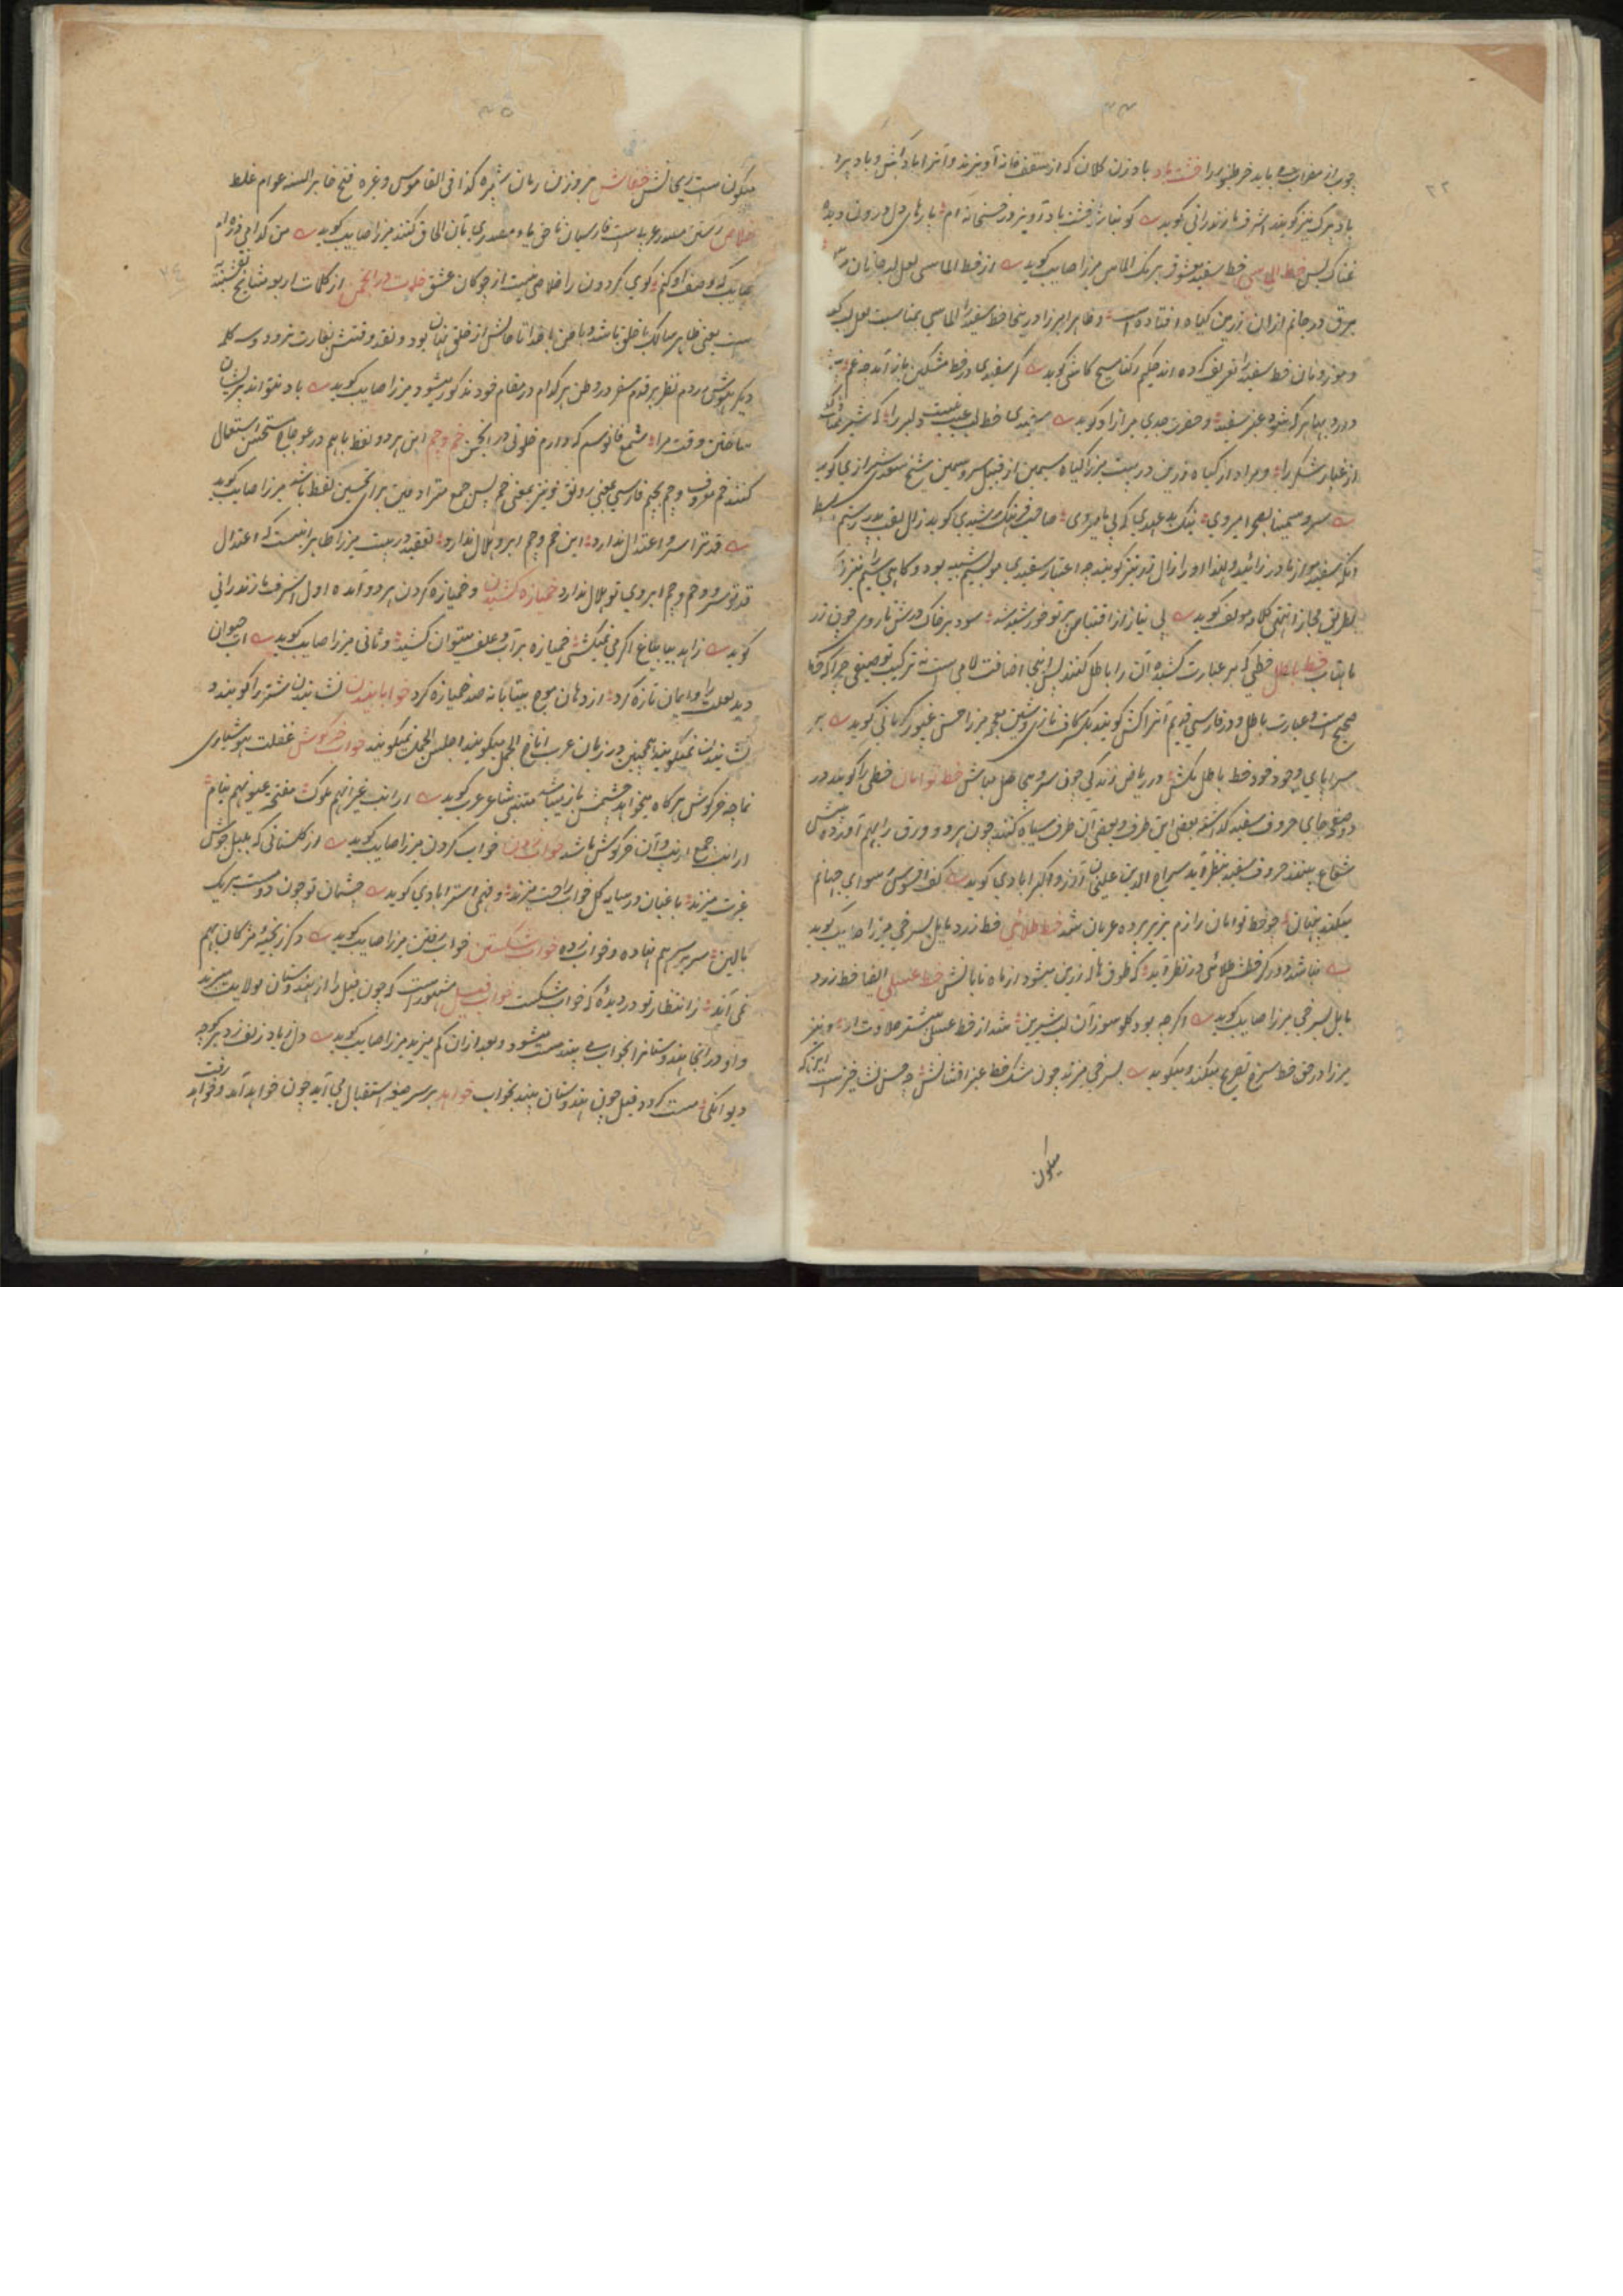 ۴۴
چوب از مضراب می باید خر طنبور را خشت باد بادزن کلان که از سقف خانه آویزند و آنرا بادکش و باد پره
باد بزک نیز گویند اشرف مازندرانی گوید
غمناک پس خط الماسی خط سفید معشوق برنگ الماس میرزا صایب گوید از خط الماسی لعل لب جانان
برق در جانم ازان زرین کیاه افتاده است و ظاهرا میرزا درینجا خط سفید را الماسی بمناسبت لعل لب گوید
و موزونان خط سفید را تعریف کرده اند حکیم رکنا مسیح کاشی گوید گر سفیدی در خط مشکین یار آمد چه غم
در دریا هر که شود عنبر سفید و حضرت جدی میر آزاد گوید سفیدی خط لب عیب نیست دلبر را که شیر
از غبار شکر را و مراد از کیاه زرین در بیت میرزا کیاه سیمین از قبیل سرو سیمین شیخ سعدی شیرازی گوید
سرو سیمینا بصحرا میروی نیک بدعهدی که بی ما میروی صاحب فرهنگ رشیدی گوید زال لقب پدر رستم
زانکه سفید مو از مادر زائید و لهذا او را زال زر نیز گویند چه اعتبار سفیدی مو بسیم شبیه بود و گاهی سیم نیز زر
بطریق مجاز انتهی کلامه مولف گوید بی نیاز از اقتباس پرتو خورشید شد سود بر خاک درش تا روی چون زر
ماهتاب خط باطل خطی که بر عبارت کشیده آن را باطل کنند پس اینجا اضافت لامی است نه ترکیب توصیفی چرا که خط
صحیح است و عبارت باطل و در فارسی قدیم آنرا کش گویند بکسر کاف تازی و شین معجمه میرزا حسن غیور کرمانی گوید بر
سراپای وجود خود خط باطل بکش در ریاض زندگی چون سرو بی حاصل مباش خط توامان خطی را گویند در
دو صفحه جای حروف سفید گذاشته بعضی این طرف و بعضی آن طرف سیاه کنند چون هر دو ورق را بهم آورده پیش
شعاع بینند حروف سفید بنظر آید سراج الدین علیخان آرزو اکبرابادی گوید کف افسوس رسوای جهانم
میکند پنهان چو خط توامان رازم بزیر پرده عریان شد خط طلائی خط زرد مایل بسرخی میرزا صایب گوید
نباشد دور گر خطش طلائی در نظر آید که طوق هاله زرین میشود از ماه تابانش خط عسلی ایضا خط زرد
مایل بسرخی میرزا صایب گوید گرچه بود گلوسوز آن لب شیرین شد از خط عسلی بیشتر حلاوت او و نیز
میرزا در حق خط سرخ تصریح میکند و میگوید بسرخی میزند چون مشک خط عنبر افشانش چه حسن نشه خیز است اینکه
میگون
۴۵
میگون است ریحانش خفاش بر وزن رمان شپره کذا فی القاموس و غیره فتح خا بر السنه عوام غلط
خلاص رستن مصدر عربیست فارسیان تاخن یاء مصدری بآن الحاق کنند میرزا صایب گوید من کدامین ذره ام
صایب که وصف او کنم گوی گردون را خلاصی نیست از چوگان عشق خلوت در انجمن از کلمات اربعه مشایخ نقشبندیه
است یعنی ظاهر سالک با خلق باشد و باطن با خدا تا حالش از خلق پنهان بود و نقد وقتش بغارت نرود و سه کلمه
دیگر هوش در دم نظر بر قدم سفر در وطن هر کدام در مقام خود مذکور میشود میرزا صایب گوید باد نتواند پریشان
ساختن وقت مرا شمع فانوسم که دارم خلوتی در انجمن خم و چم این هر دو لفظ با هم در عوجاج مستحسن استعمال
کنند خم معروف و چم بجیم فارسی بمعنی رونق و نیز بمعنی خم پس جمع مترادفین برای تحسین لفظ باشد میرزا صایب گوید
قد ترا سرو اعتدال ندارد این خم و چم ابرو هلال ندارد تعقید در بیت میرزا ظاهر است که اعتدال
قد تو سرو و خم و چم ابروی تو هلال ندارد خمیازه کشیدن و خمیازه کردن هر دو آمده اول اشرف مازندرانی
گوید زاهد بیا بباغ اگر می نمیکشی خمیازه بر آب و علف میتوان کشید و ثانی میرزا صایب گوید آب حیوان
دید لعلت را و ایمان تازه کرد از دهان موج بیتابانه صد خمیازه کرد خوابانیدن نشانیدن شتر را گویند و
نشانیدن نمیگویند همچنین در زبان عرب اناخ الجمل میگویند اجلس الجمل نمیگویند خواب خرگوش غفلت هوشیاری
نمایه خرگوش هر گاه میخوابد چشمش باز میباشد متنبی شاعر عرب گوید ارانب غیر انهم ملوک مفتحة عیونهم نیام
ارانب جمع ارنب و آن خرگوش باشد خواب زدن خواب کردن میرزا صایب گوید از گلستانی که بلبل جوش
غیرت میزند باغبان در سایه گل خواب راحت میزند و فهمی استرابادی گوید چشمان تو چون دو مست بر یک
بالین سر بر سر هم نهاده و خواب زده خواب شکستن خواب رفتن میرزا صایب گوید دگر ز بخیه مژگان بهم
نمی آید ز انتظار تو در دیده که خواب شکست خواب فیل مشهور است که چون فیل را از هندوستان بولایت میبرند
و او در آنجا هندوستانرا بخواب می بیند مست میشود و بعد از آن کم میزید میرزا صایب گوید دل از یاد زلف زد هر گوی
دیوانگی مست گردد فیل چون هندوستان بیند بخواب خواهد بر سر صیغه استقبال می آید چون خواهد آمد و خواهد رفت